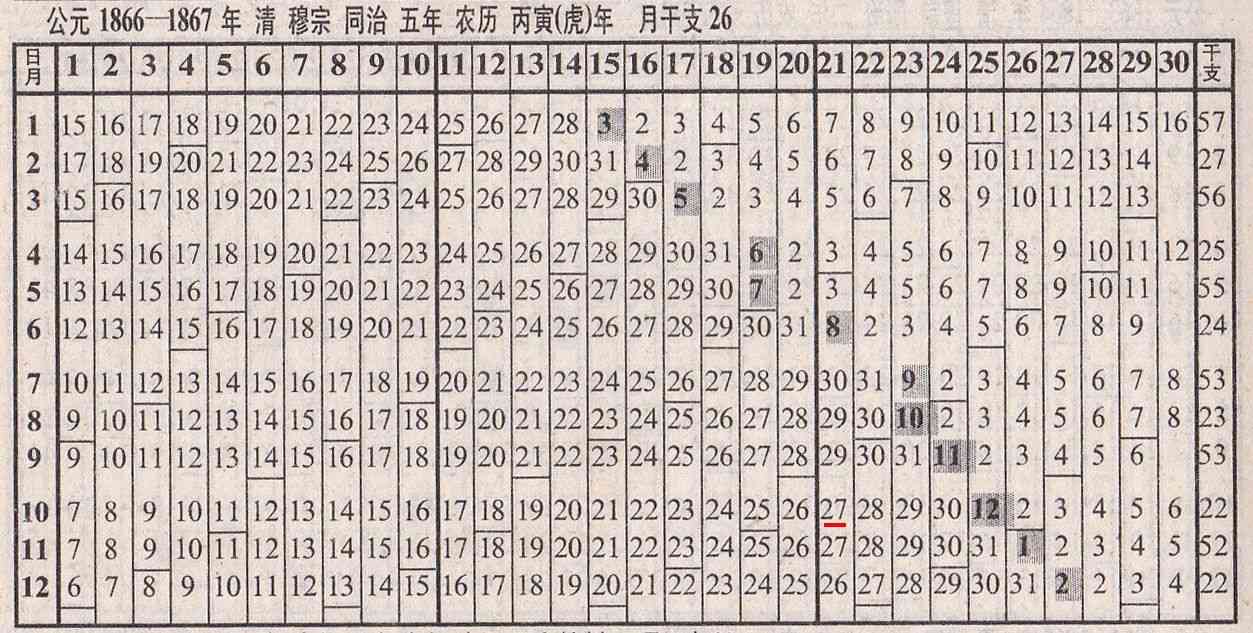 公元 1866—1867 年 清 穆宗 同治 五年 农历 丙寅(虎)年 月干支 26
日月 1 2 3 4 5 6 7 8 9 10 11 12 13 14 15 16 17 18 19 20 21 22 23 24 25 26 27 28 29 30 干支
1 15 16 17 18 19 20 21 22 23 24 25 26 27 28 3 2 3 4 5 6 7 8 9 10 11 12 13 14 15 16 57
2 17 18 19 20 21 22 23 24 25 26 27 28 29 30 31 4 2 3 4 5 6 7 8 9 10 11 12 13 14 27
3 15 16 17 18 19 20 21 22 23 24 25 26 27 28 29 30 5 2 3 4 5 6 7 8 9 10 11 12 13 56
4 14 15 16 17 18 19 20 21 22 23 24 25 26 27 28 29 30 31 6 2 3 4 5 6 7 8 9 10 11 12 25
5 13 14 15 16 17 18 19 20 21 22 23 24 25 26 27 28 29 30 7 2 3 4 5 6 7 8 9 10 11 55
6 12 13 14 15 16 17 18 19 20 21 22 23 24 25 26 27 28 29 30 31 8 2 3 4 5 6 7 8 9 24
7 10 11 12 13 14 15 16 17 18 19 20 21 22 23 24 25 26 27 28 29 30 31 9 2 3 4 5 6 7 8 53
8 9 10 11 12 13 14 15 16 17 18 19 20 21 22 23 24 25 26 27 28 29 30 10 2 3 4 5 6 7 8 23
9 9 10 11 12 13 14 15 16 17 18 19 20 21 22 23 24 25 26 27 28 29 30 31 11 2 3 4 5 6 53
10 7 8 9 10 11 12 13 14 15 16 17 18 19 20 21 22 23 24 25 26 27 28 29 30 12 2 3 4 5 6 22
11 7 8 9 10 11 12 13 14 15 16 17 18 19 20 21 22 23 24 25 26 27 28 29 30 31 1 2 3 4 5 52
12 6 7 8 9 10 11 12 13 14 15 16 17 18 19 20 21 22 23 24 25 26 27 28 29 30 31 2 2 3 4 22